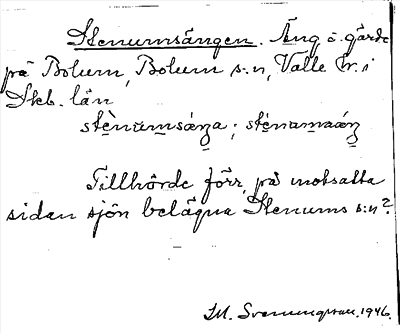 Stenumsängen. Äng o. gärde
på Bolum, Bolum s:n, Valle hr. i
Skb. län
stènumsáŋa; sténamaáŋ
Tillhörde förr på motsatta
sidan sjön belägna Stenums s:n?
M. Svenungsson. 1946.